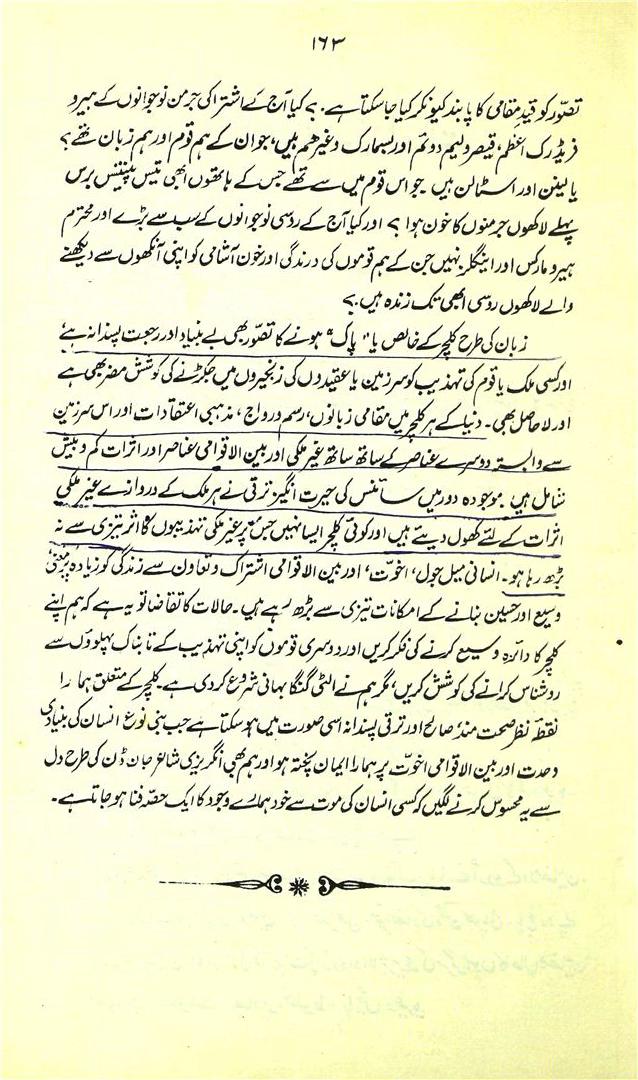 ۱۶۳
تصوّر کو قیدِ مقامی کا پابند کیونکر کیا جا سکتا ہے۔ ؟ کیا آج کے اشتراکی جرمن نوجوانوں کے ہیرو
فریڈرک اعظم، قیصر ولیم دوئم اور بسمارک وغیرھم ہیں، جو ان کے ہم قوم اور ہم زبان تھے ؟
یا لینن اور اسٹالن ہیں۔ جو اس قوم میں سے تھے جس کے ہاتھوں ابھی تیس پینتیس برس
پہلے لاکھوں جرمنوں کا خون ہوا ؟ اور کیا آج کے روسی نوجوانوں کے سب سے بڑے اور محترم
ہیرو مارکس اور اینگلز نہیں جن کے ہم قوموں کی درندگی اور خون آشامی کو اپنی آنکھوں سے دیکھنے
والے لاکھوں روسی ابھی تک زندہ ہیں۔ ؟
زبان کی طرح کلچر کے خالص یا "پاک" ہونے کا تصوّر بھی بے بنیاد اور رجعت پسندانہ ہے
اور کسی ملک یا قوم کی تہذیب کو سرزمین یا عقیدوں کی زنجیروں میں جکڑنے کی کوشش مضر بھی ہے
اور لاحاصل بھی۔ دنیا کے ہر کلچر میں مقامی زبانوں، رسم و رواج، مذہبی اعتقادات اور اس سرزمین
سے وابستہ دوسرے عناصر کے ساتھ ساتھ غیر ملکی اور بین الاقوامی عناصر اور اثرات کم و بیش
شامل ہیں۔ موجودہ دور میں سائنس کی حیرت انگیز ترقی نے ہر ملک کے دروازے غیر ملکی
اثرات کے لئے کھول دیئے ہیں اور کوئی کلچر ایسا نہیں جس پر غیر ملکی تہذیبوں کا اثر تیزی سے نہ
بڑھ رہا ہو۔ انسانی میل جول، اخوّت، اور بین الاقوامی اشتراک و تعاون سے زندگی کو زیادہ پُر معنیٰ
وسیع اور حسین بنانے کے امکانات تیزی سے بڑھ رہے ہیں۔ حالات کا تقاضا تو یہ ہے کہ ہم اپنے
کلچر کا دائرہ وسیع کرنے کی فکر کریں اور دوسری قوموں کو اپنی تہذیب کے تابناک پہلوؤں سے
روشناس کرانے کی کوشش کریں، مگر ہم نے الٹی گنگا بہانی شروع کر دی ہے۔ کلچر کے متعلق ہمارا
نقطۂ نظر صحت مند، صالح اور ترقی پسندانہ اسی صورت میں ہو سکتا ہے جب بنی نوع انسان کی بنیادی
وحدت اور بین الاقوامی اخوّت پر ہمارا ایمان پختہ ہو اور ہم بھی انگریزی شاعر جان ڈن کی طرح دل
سے یہ محسوس کرنے لگیں کہ کسی انسان کی موت سے خود ہمارے وجود کا ایک حصّہ فنا ہو جاتا ہے۔